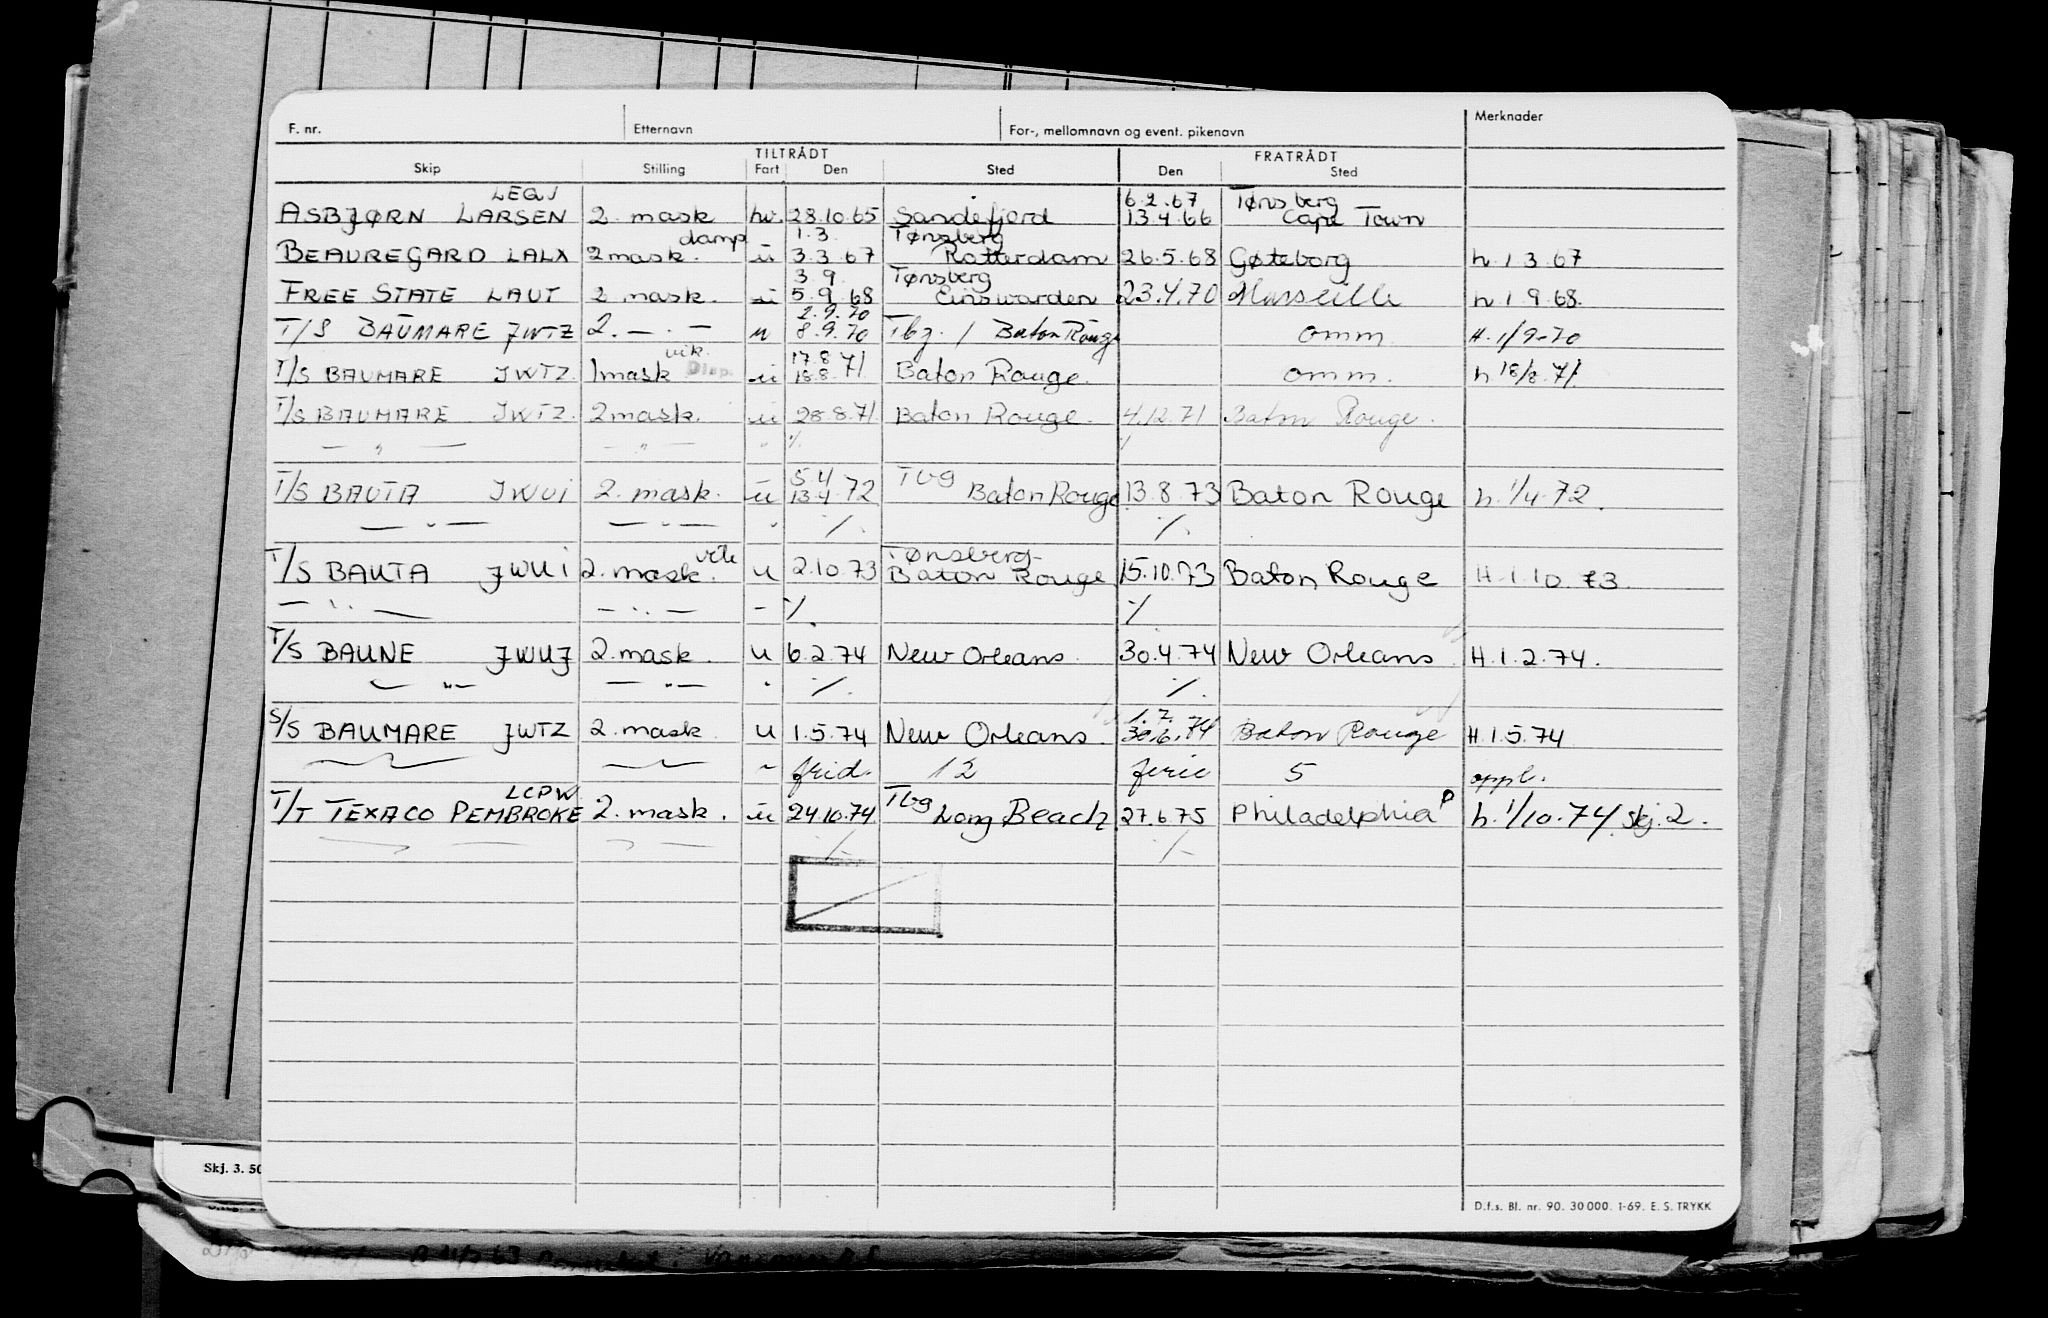 F. nr. Etternavn For-, mellomnavn og event. pikenavn Merknader
TILTRÅDT FRATRÅDT
Skip Stilling Fart Den Sted Den Sted
LEQJ 6.2.67 Tønsberg
ASBJØRN LARSEN 2. mask hv. 28.10.65 Sandefjord 13.4.66 Cape Town
damp 1.3. Tønsberg
BEAUREGARD LALX 2 mask. u 3.3.67 Rotterdam 26.5.68 Gøteborg h 1.3.67
3.9. Tønsberg
FREE STATE LAUT 2 mask. u 5.9.68 Einswarden 23.4.70 Marseille h 1.9.68.
2.9.70
T/S BAUMARE JWTZ 2. — . — u 8.9.70 Tbg. / Baton Rouge omm H. 1/9-70
vik. 17.8
T/S BAUMARE JWTZ. 1 mask Disp. u 18.8.71 Baton Rouge. omm. h 18/8.71
T/S BAUMARE JWTZ. 2 mask. u 28.8.71 Baton Rouge. 4.12.71 Baton Rouge.
— " — — " — " ⁒ ⁒
5.4 Tbg
T/S BAUTA JWUI 2. mask. u 13.4.72 Baton Rouge 13.8.73 Baton Rouge h. 1/4.72.
— " — — " — " ⁒ ⁒
vik Tønsberg-
T/S BAUTA JWUI 2. mask. u 2.10.73 Baton Rouge 15.10.73 Baton Rouge H. 1.10.73.
— " — — " — - ⁒ ⁒
T/S BAUNE JWUJ 2. mask. u 6.2.74 New Orleans 30.4.74 New Orleans. H. 1.2.74.
— " — — " — " ⁒ ⁒
1.7.
S/S BAUMARE JWTZ 2. mask. u 1.5.74 New Orleans. 30.6.74 Baton Rouge H. 1.5.74
frid. 12 ferie 5 oppl.
LCPW Tbg
T/T TEXACO PEMBROKE 2. mask. u 24.10.74 Long Beach 27.6.75 Philadelphia P h. 1/10.74 skj. 2.
⁒ ⁒
Skj. 3. 50
D.f.s. Bl. nr. 90. 30 000. 1-69. E. S. TRYKK